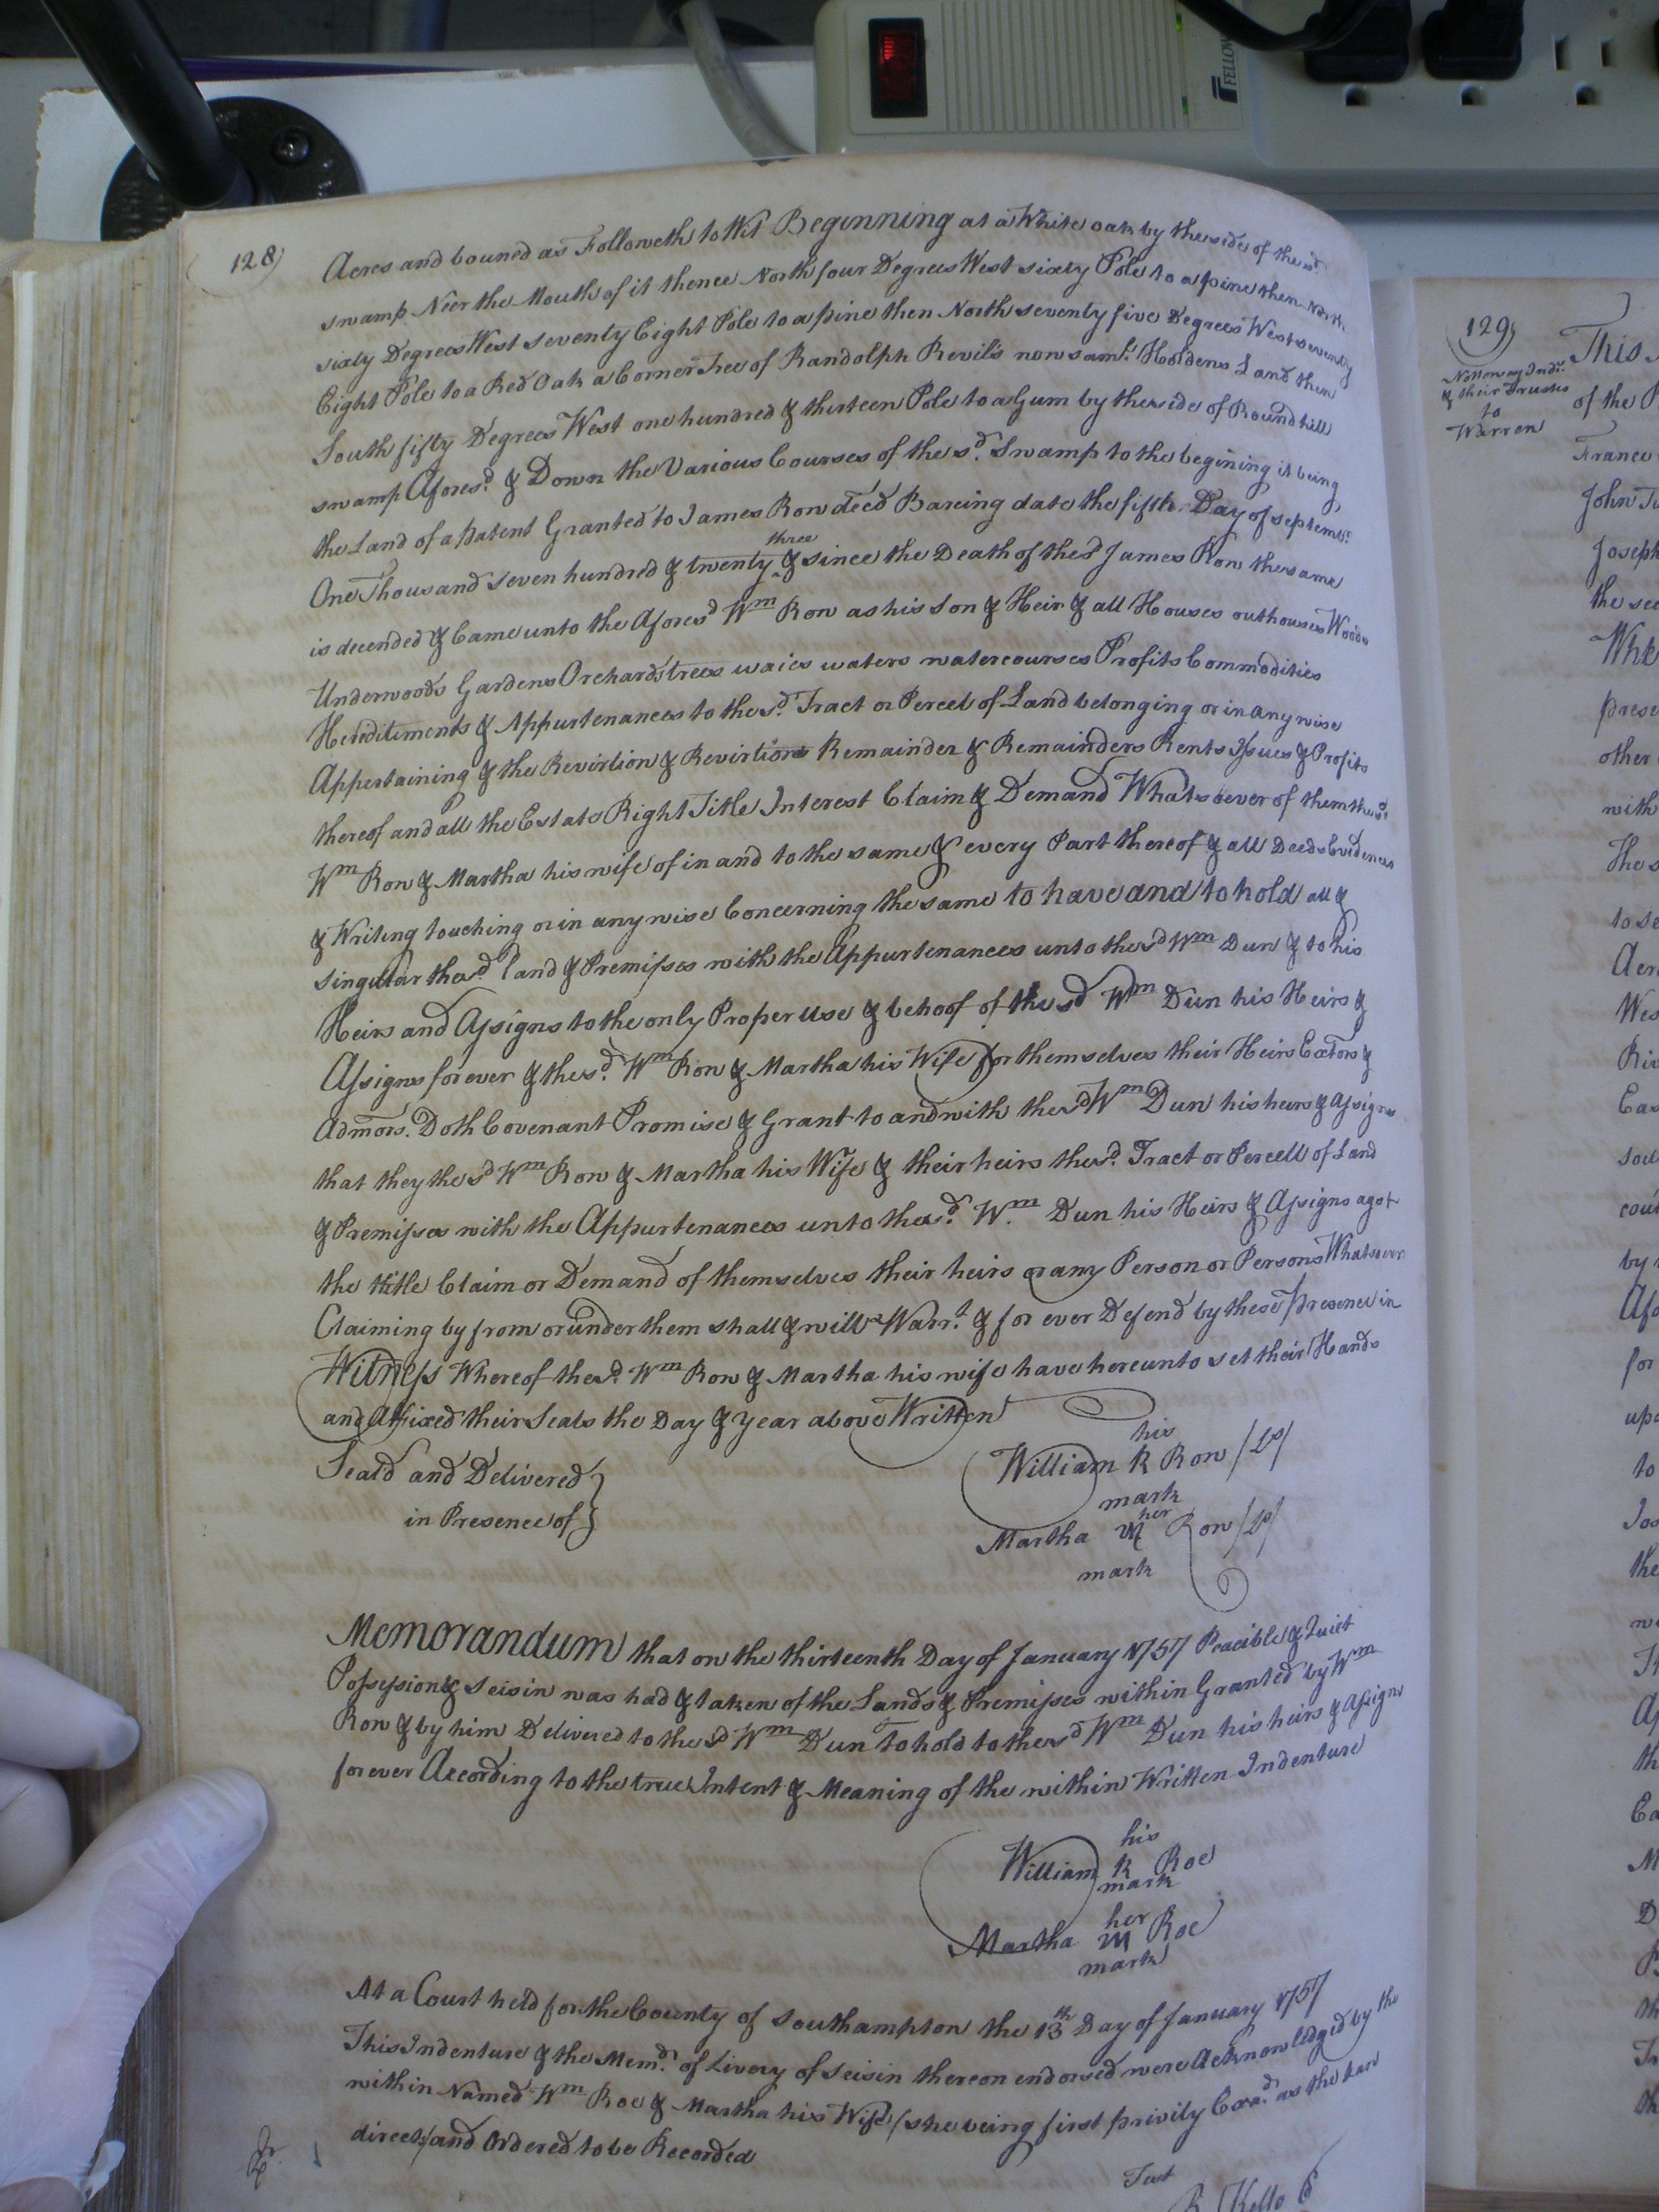 FELLOW
128)
Acres and bouned as Followeth to Wit Beginning at a White oak by the side of the sd
swamp Neer the Mouth of it thence North four Degrees West sixty Pole to a pine then North
sixty Degrees West seventy Eight Pole to a pine then North seventy five Degrees West seventy
Eight Pole to a Red Oak a Corner Tree of Randolph Revil's now saml. Holdens Land then
South fifty Degrees West one hundred & thirteen Pole to a Gum by the side of Round hill
swamp Aforesd. & Down the Various Courses of the sd. Swamp to the begining it being
the Land of a patent Granted to James Row decd Bareing date the fifth Day of septembr.
One Thousand seven hundred & twenty three & since the Death of the sd James Row the same
is decended & Came unto the Aforesd Wm Row as his Son & Heir & all Houses outhouses Woods
Underwoods Gardens Orchards trees waies waters watercourses Profits Commodities
Hereditements & Appurtenances to the sd. Tract or Percel of Land belonging or in any wise
Appertaining & the Revirtion & Revirtions Remainder & Remainders Rents Issues & Profits
thereof and all the Estate Right Title Interest Claim & Demand Whatsoever of them the sd.
Wm Row & Martha his wife of in and to the same & every Part thereof & all Deeds Evidences
& Writing touching or in any wise Concerning the same to have and to hold all &
singular the sd. Land & Premisses with the Appurtenances unto the sd Wm Dun & to his
Heirs and Assigns to the only Proper Use & behoof of the sd Wm Dun his Heirs &
Assigns for ever & the sd. Wm Row & Martha his Wife for themselves their Heirs Exctors &
Admors. Doth Covenant Promise & Grant to and with the sd Wm Dun his heirs & assigns
that they the sd Wm Row & Martha his Wife & their heirs the sd. Tract or Percell of Land
& Premisses with the Appurtenances unto the sd. Wm. Dun his Heirs & Assigns agst
the title Claim or Demand of themselves their heirs or any Person or Persons Whatsoever
Claiming by from or under them shall & will Warrt. & for ever Defend by these presence in
Witness Whereof the sd. Wm Row & Martha his wife have hereunto set their Hands
and Affixed their Seals the Day & Year above Written
Seald and Delivered }
in Presence of }
his
William R Row /Ls/
mark
her
Martha M Row /Ls/
mark
Memorandum that on the thirteenth Day of January 1757 Peacible & Quiet
Possession & Seisin was had & taken of the Lands & Premisses within Granted by Wm
Row & by him Delivered to the sd Wm Dun To hold to the sd Wm Dun his heirs & Assigns
forever According to the true Intent & Meaning of the within Written Indenture
his
William R Roe
mark
her
Martha M Roe
mark
At a Court held for the County of Southampton the 13th Day of January 1757
This Indenture & the Memd. of Livery of Seisin thereon endorsed were Acknowledged by the
within Named Wm Roe & Martha his Wife (she being first privily Exad. as the Law
directs) and Ordered to be Recorded
Test
R Kello C
129)
Nottoway Indns.
& their Trustes
to
Warren
This
of the
France
John
Joseph
the
prese
other
with
The
to se
by
for
to
the